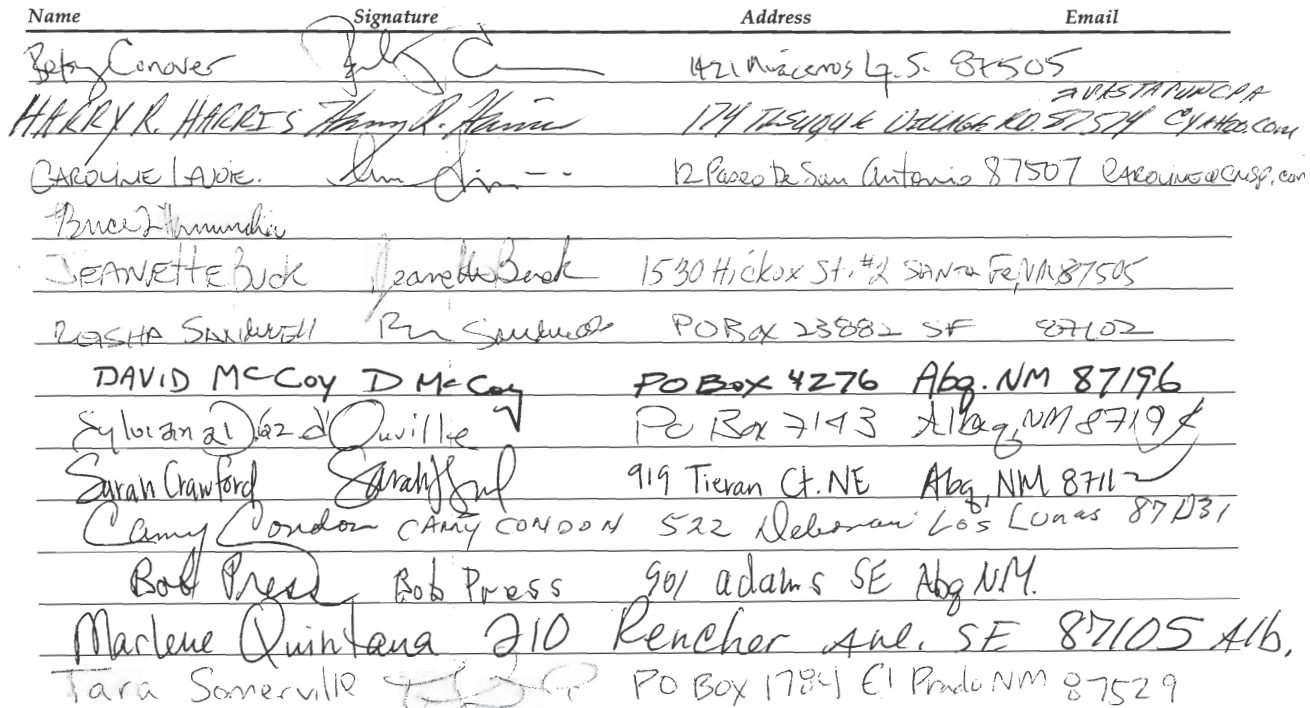 Name Signature Address Email
Betsy Conover 1421 L.S. 87505
HARRY R. HARRIS Harry R. Harris 174 TESUQUE VILLAGE RD. 87574 @YAHOO.COM
CAROLINE LAVOIE. 12 Paseo De San Antonio 87507
Bruce
JEANETTE BUCK Jeanette Buck 1530 Hickox St. #2 SANTA Fe, NM 87505
PO Box 23882 SF 87102
DAVID McCoy D McCoy PO Box 4276 Abq. NM 87196
Sylvian Diaz d'Ouville Po Box 7143 Albuq, NM 8719
Sarah Crawford 919 Tieran Ct. NE Abq, NM 8711
Camy Condon CAMY CONDON 522 Los Lunas 87031
Bob Press Bob Press 901 adams SE Abq NM.
Marlene Quintana 210 Rencher Ave. SE 87105 Alb.
Tara Somerville PO Box 1784 El Prado NM 87529